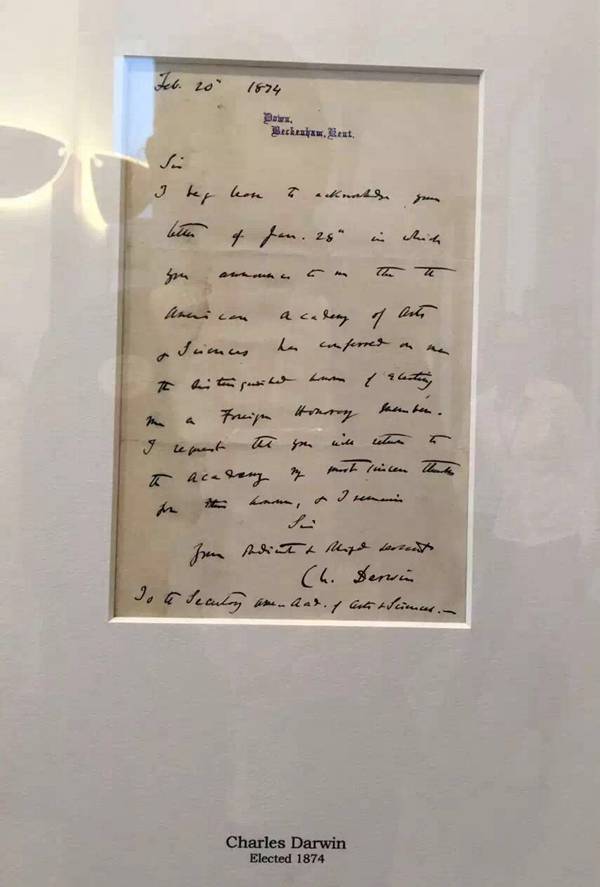 Feb. 20th 1874
Down,
Beckenham, Kent.
Sir
I beg leave to acknowledge your
letter of Jan. 28th in which
you announce to me that the
American Academy of Arts
& Sciences has conferred on me
the distinguished honour of electing
me a Foreign Honorary Member.
I request that you will return to
the Academy my most sincere thanks
for this honour, & I remain
Sir
Your obedient & obliged servant
Ch. Darwin
To the Secretary Amer. Acad. of Arts & Sciences.—
Charles Darwin
Elected 1874